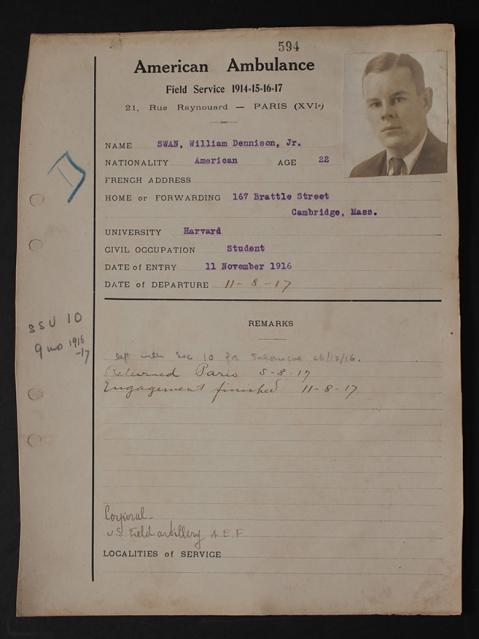 594
American Ambulance
Field Service 1914-15-16-17
21, Rue Raynouard — PARIS (XVIe)
NAME SWAN, William Dennison, Jr.
NATIONALITY American AGE 22
FRENCH ADDRESS
HOME or FORWARDING 167 Brattle Street
Cambridge, Mass.
UNIVERSITY Harvard
CIVIL OCCUPATION Student
DATE of ENTRY 11 November 1916
DATE of DEPARTURE 11-8-17
SSU 10
9 mo 1916
-17
REMARKS
left with Sec 10 for Salonica 26/12/16.
Returned Paris 5-8-17
Engagement finished 11-8-17
Corporal
U.S. Field artillery A.E.F.
LOCALITIES of SERVICE